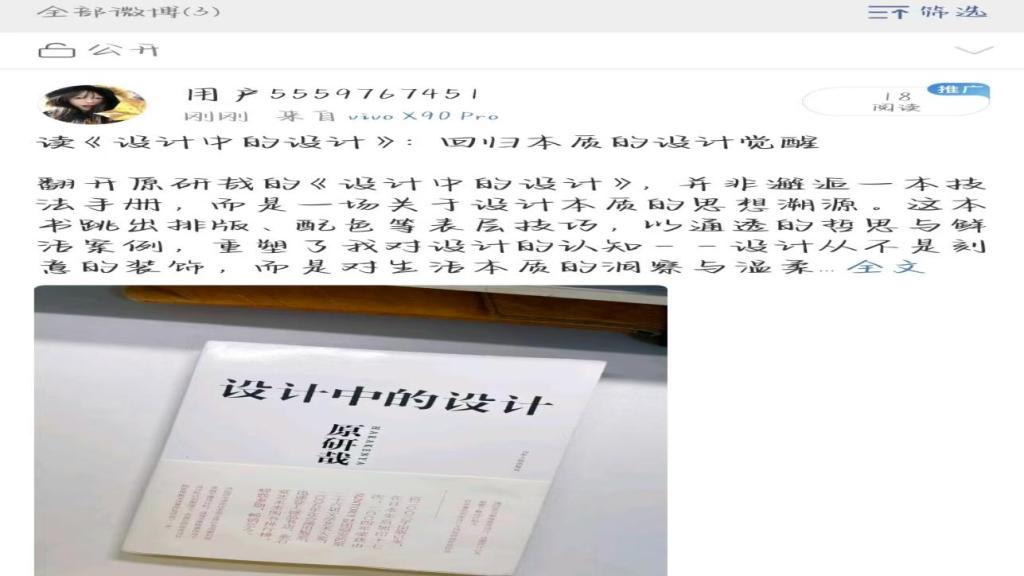 全部微博(3)
筛选
公开
用户5559767451
刚刚 来自 vivo X90 Pro
18
阅读
推广
读《设计中的设计》：回归本质的设计觉醒
翻开原研哉的《设计中的设计》，并非邂逅一本技
法手册，而是一场关于设计本质的思想溯源。这本
书跳出排版、配色等表层技巧，以通透的哲思与鲜
活案例，重塑了我对设计的认知--设计从不是刻
意的装饰，而是对生活本质的洞察与温柔... 全文
设计中的设计
原研哉
HARAKENYA